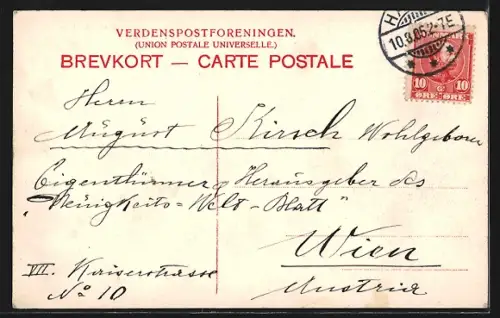 VERDENSPOSTFORENINGEN.
(UNION POSTALE UNIVERSELLE.)
BREVKORT — CARTE POSTALE
10.8.06.2-7E
10 10
ØRE ØRE
Herrn
Aŭgŭst Kirsch Wohlgeboren
Eigenthümer & Herausgeber des
"Neŭigkeits=Welt=Blatt"
Wien
VII. Kaiserstrasse
No 10
Austria